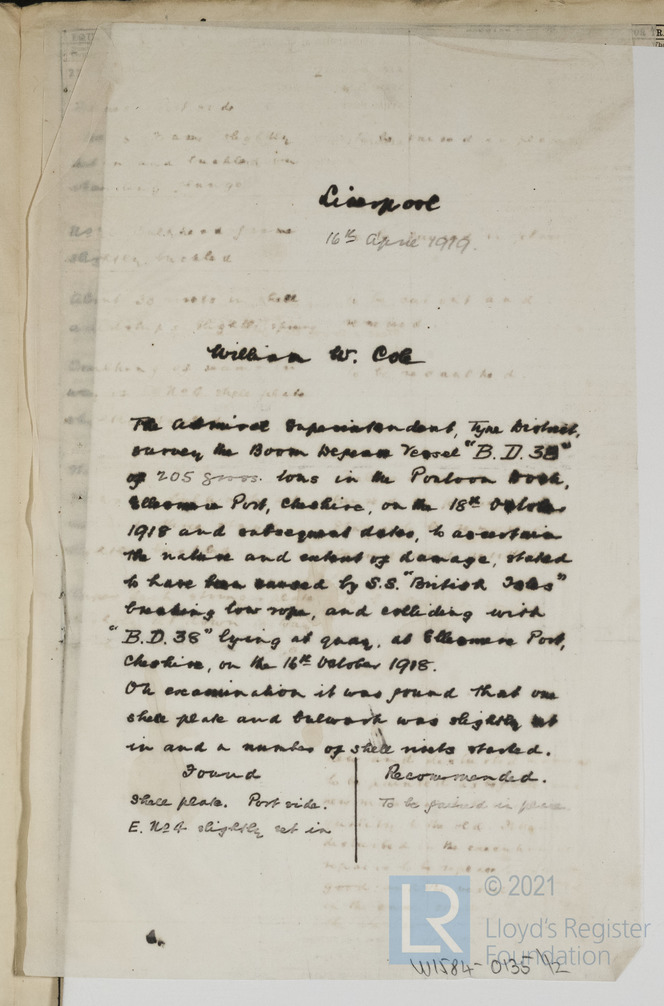 Liverpool
16th April 1919.
William W. Cole
The Admiral Superintendent, Tyne District,
survey the Boom Defence Vessel "B.D. 38"
of 205 gross. tons in the Pontoon Dock,
Ellesmere Port, Cheshire, on the 18th October
1918 and subsequent dates, to ascertain
the nature and extent of damage, stated
to have been caused by S.S. "British Isles"
breaking tow rope, and colliding with
"B.D. 38" lying at quay, at Ellesmere Port,
Cheshire, on the 16th October 1918.
On examination it was found that one
shell plate and bulwark was slightly set
in and a number of shell rivets started.
Found
Recommended.
Shell plate. Port side.
To be faired in place.
E. No 4 slightly set in
LR
© 2021
Lloyd's Register
Foundation
W1584-0135 1/2